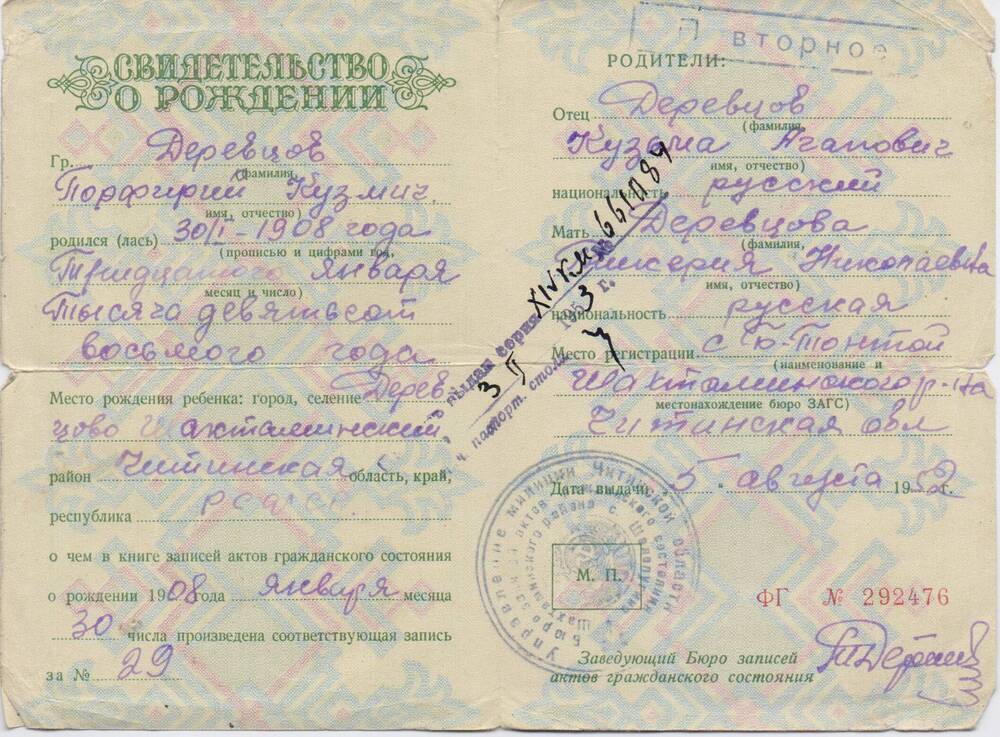 СВИДЕТЕЛЬСТВО
О РОЖДЕНИИ
Гр. Деревцов
(фамилия,
Порфирий Кузмич.
имя, отчество)
родился (лась) 30/I-1908 года
(прописью и цифрами год,
Тридцатого января
месяц и число)
Тысяча девятьсот
восьмого года
Место рождения ребенка: город, селение Дерев
цово Шахтаминский
район Читинская область, край,
республика РСФСР.
о чем в книге записей актов гражданского состояния
о рождении 1908 года января месяца
30 числа произведена соответствующая запись
за № 29
Повторное
РОДИТЕЛИ:
Отец Деревцов
(фамилия,
Кузьма Агапович
имя, отчество)
национальность русский
Мать Деревцова
(фамилия,
Гликерия Николаевна
имя, отчество)
национальность русская
Место регистрации с
(наименование и
Шахтаминского р-на
местонахождение бюро ЗАГС)
Читинская обл
Дата выдачи 5 августа 1952 г.
М. П.
ФГ № 292476
Заведующий Бюро записей
актов гражданского состояния
серия XIV КМ № 661084
паспорт. стола
Управление милиции Читинской области